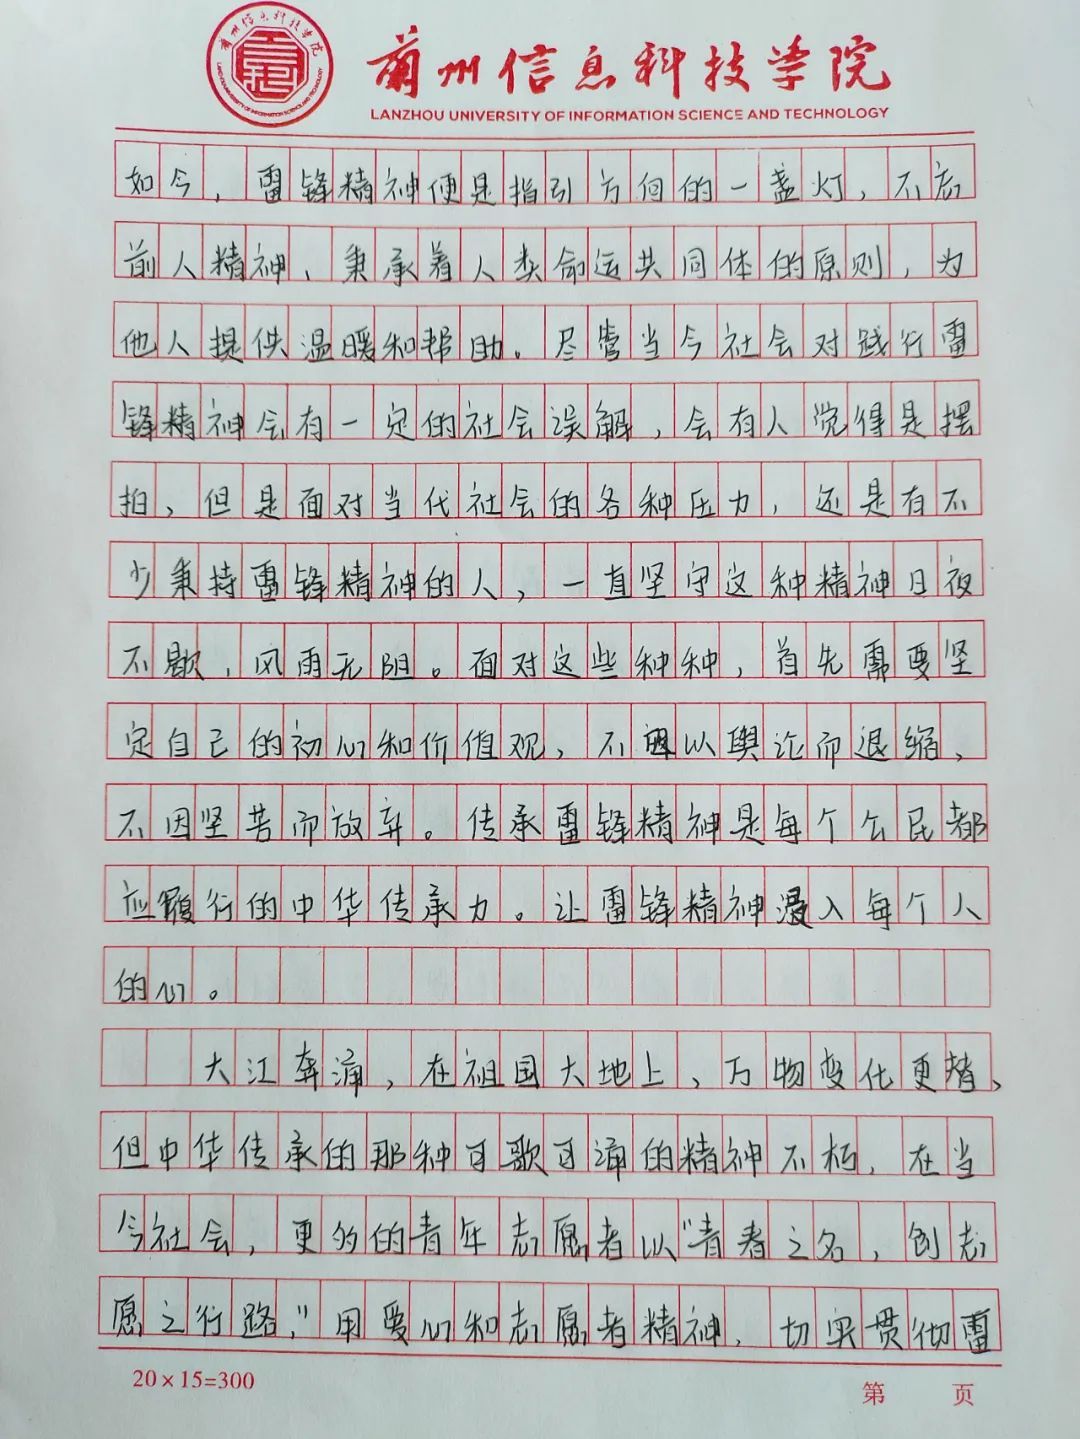 兰州信息科技学院
LANZHOU UNIVERSITY OF INFORMATION SCIENCE AND TECHNOLOGY
如今,雷锋精神便是指引方向的一盏灯,不忘
前人精神、秉承着人类命运共同体的原则,为
他人提供温暖和帮助。尽管当今社会对践行雷
锋精神会有一定的社会误解,会有人觉得是摆
拍,但是面对当代社会的各种压力,还是有不
少秉持雷锋精神的人,一直坚守这种精神日夜
不歇,风雨无阻。面对这些种种,首先需要坚
定自己的初心和价值观,不因以舆论而退缩,
不因坚苦而放弃。传承雷锋精神是每个公民都
应履行的中华传承力。让雷锋精神浸入每个人
的心。
大江奔涌,在祖国大地上,万物变化更替,
但中华传承的那种可歌可涌的精神不朽,在当
今社会,更多的青年志愿者以“青春之名,创志
愿之行路,”用爱心和志愿者精神,切实贯彻雷
20×15=300
第 页